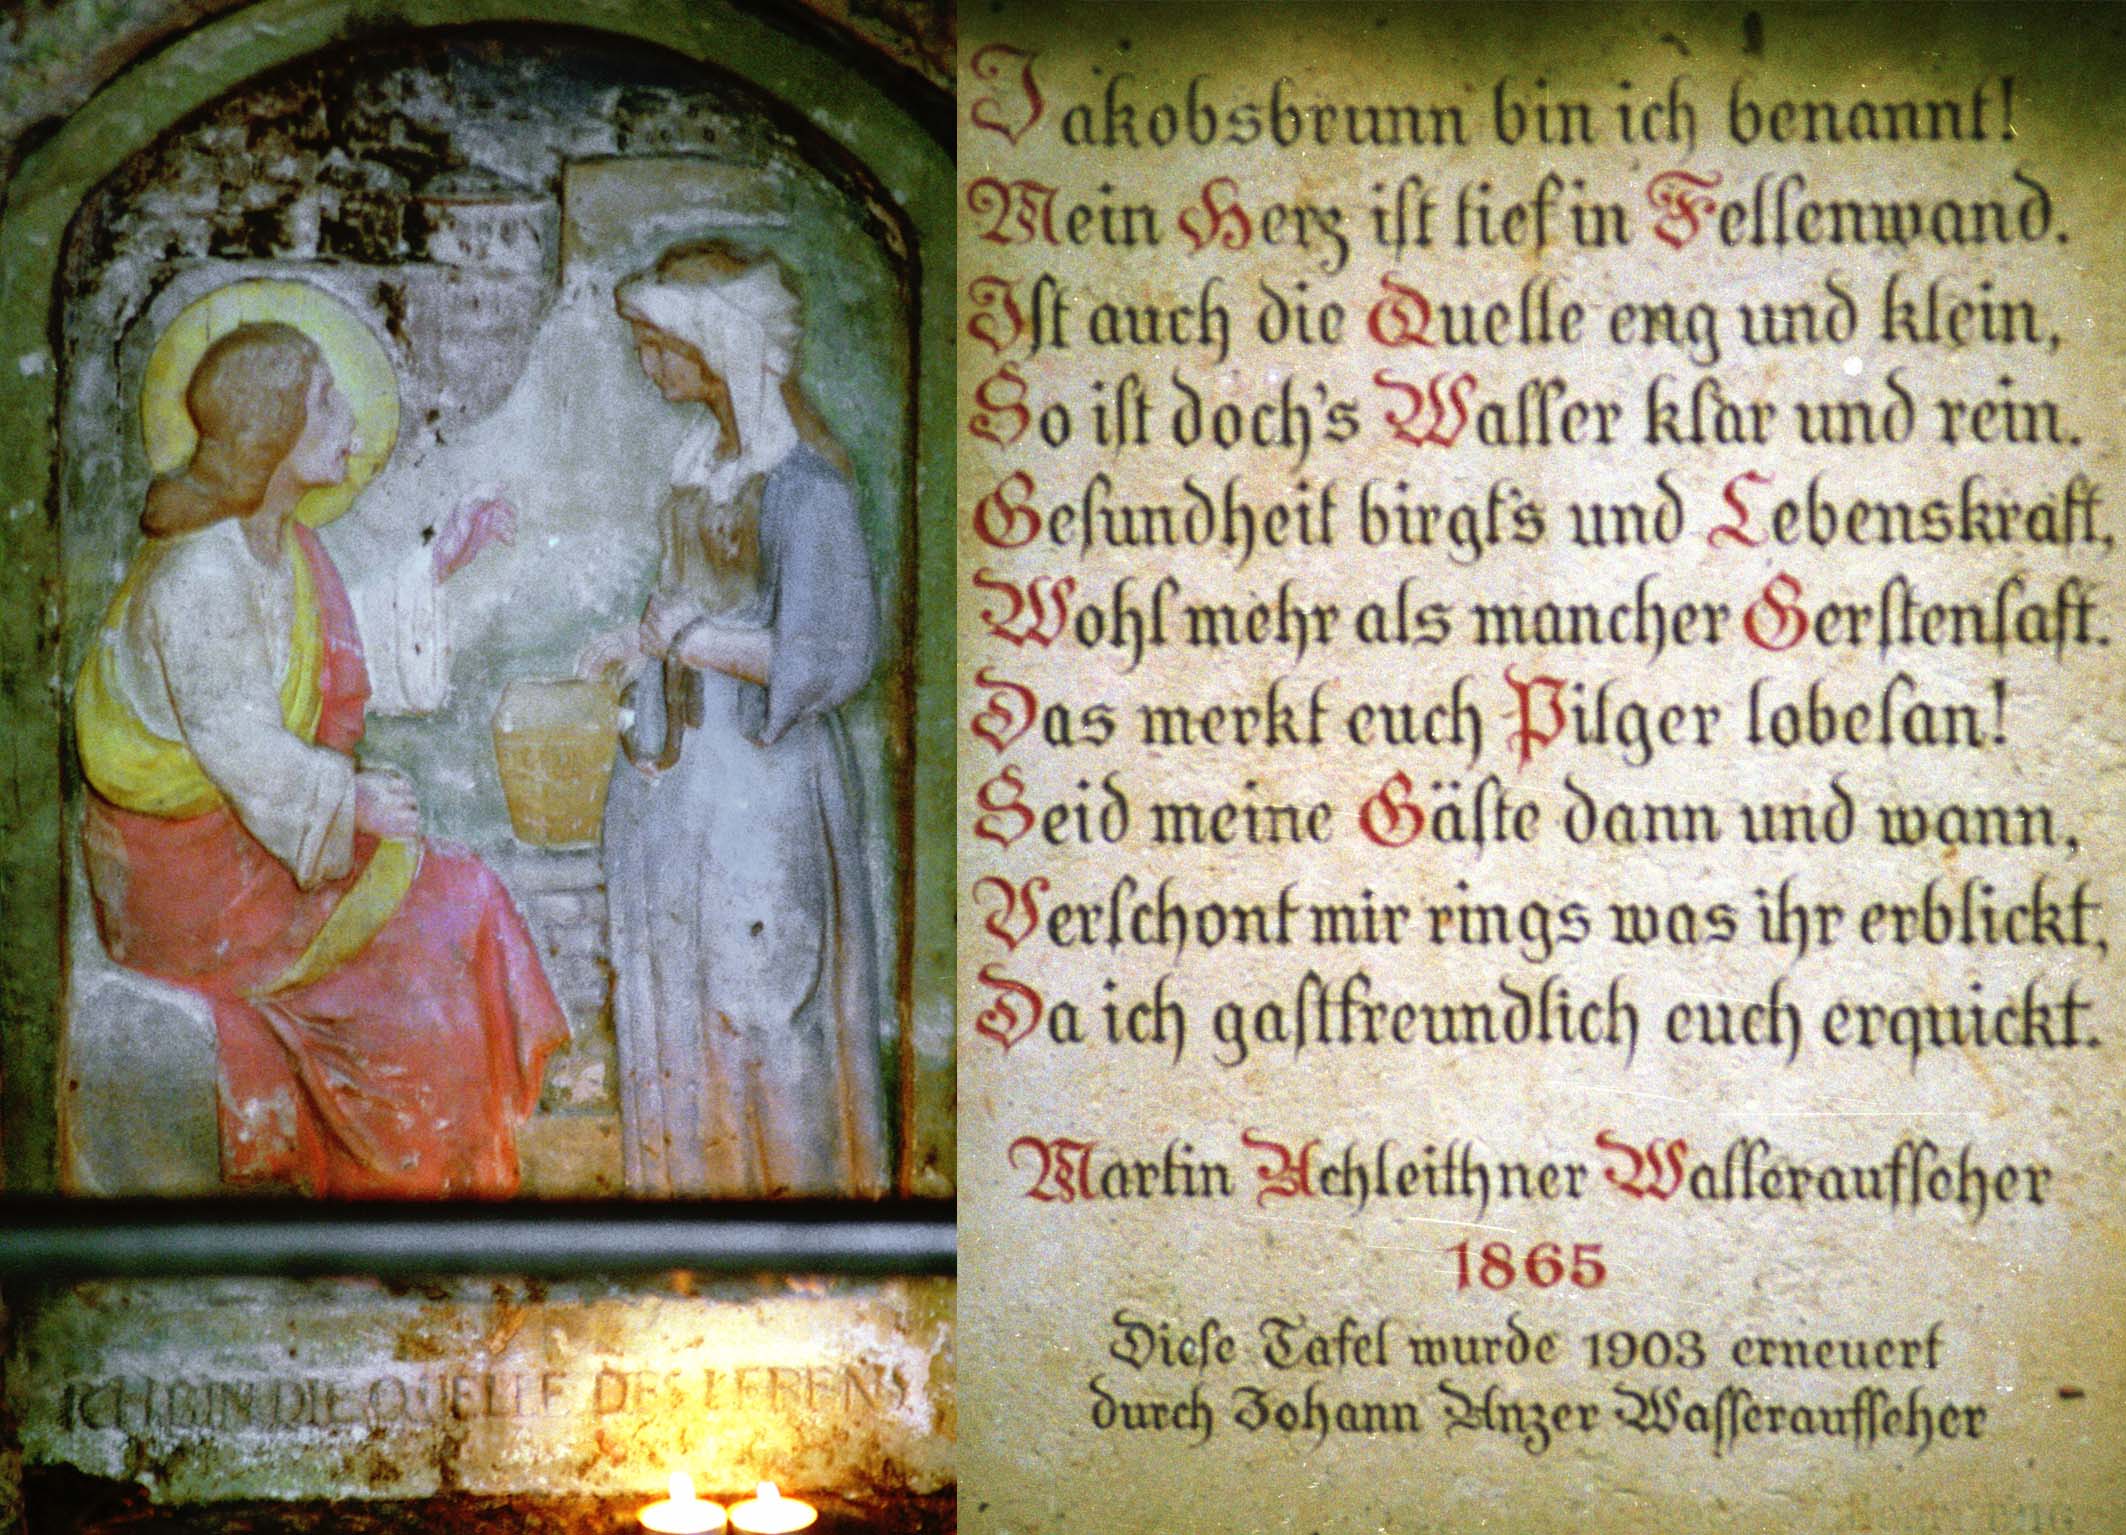 ICH BIN DIE QUELLE DES LEBENS
Jakobsbrunn bin ich benannt!
Mein Herz iſt tief in Felſenwand.
Iſt auch die Quelle eng und klein,
So iſt doch's Waſſer klar und rein.
Geſundheit birgt's und Lebenskraft,
Wohl mehr als mancher Gerſtenſaft.
Das merkt euch Pilger lobeſan!
Seid meine Gäſte dann und wann,
Verſchont mir rings was ihr erblickt,
Da ich gaſtfreundlich euch erquickt.
Martin Achleithner Waſſeraufſeher
1865
Dieſe Tafel wurde 1903 erneuert
durch Johann Unzer Waſſeraufſeher